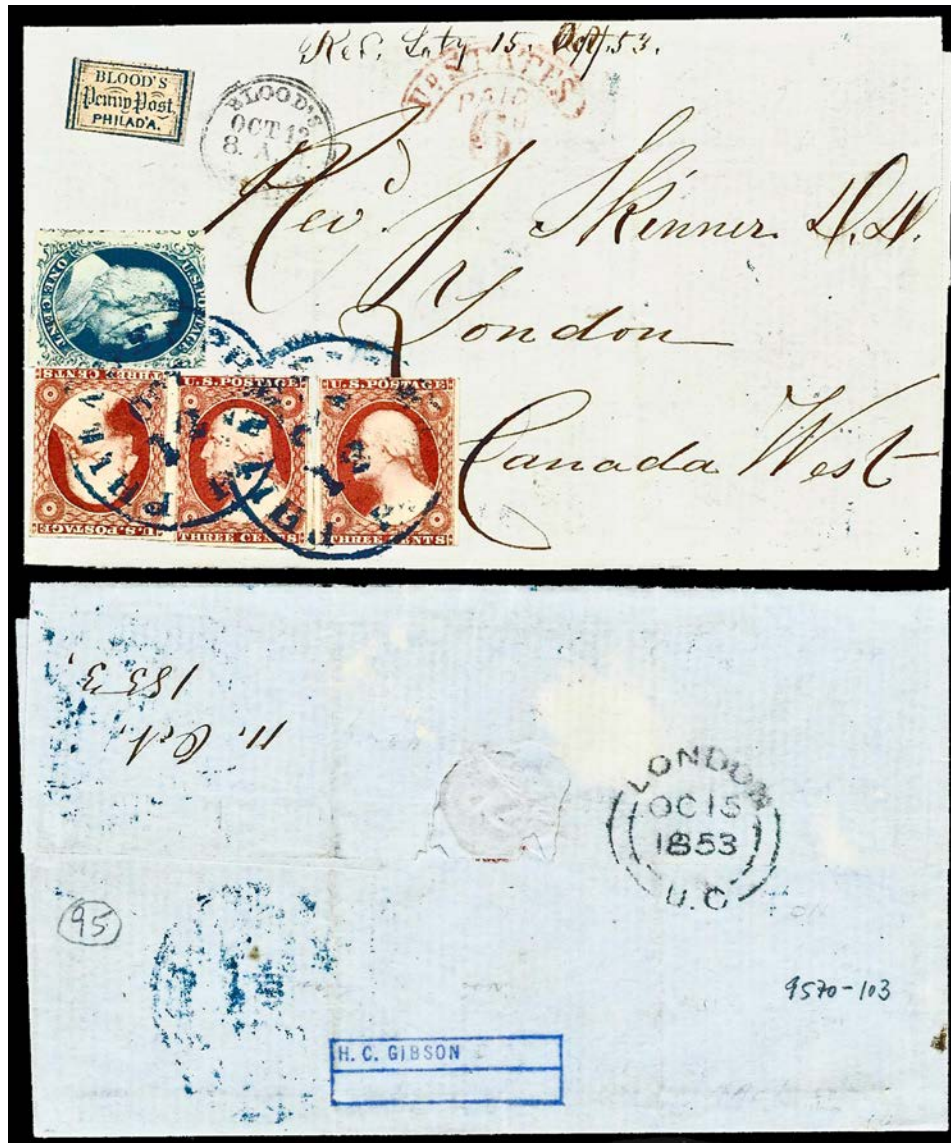 Rec. Saty 15. Oct. 53.
BLOOD'S
Penny Post
PHILAD'A.
BLOOD'S
OCT 12
8. A.M.
UD STATES
PAID
6D
Revd. J. Skinner D.D.
London
Canada West
U.S. POSTAGE
ONE CENT
U.S. POSTAGE
THREE CENTS
U.S. POSTAGE
THREE CENTS
U.S. POSTAGE
THREE CENTS
11. Oct.
1853,
LONDON
OC 15
1853
U.C
95
9570-103
H. C. GIBSON